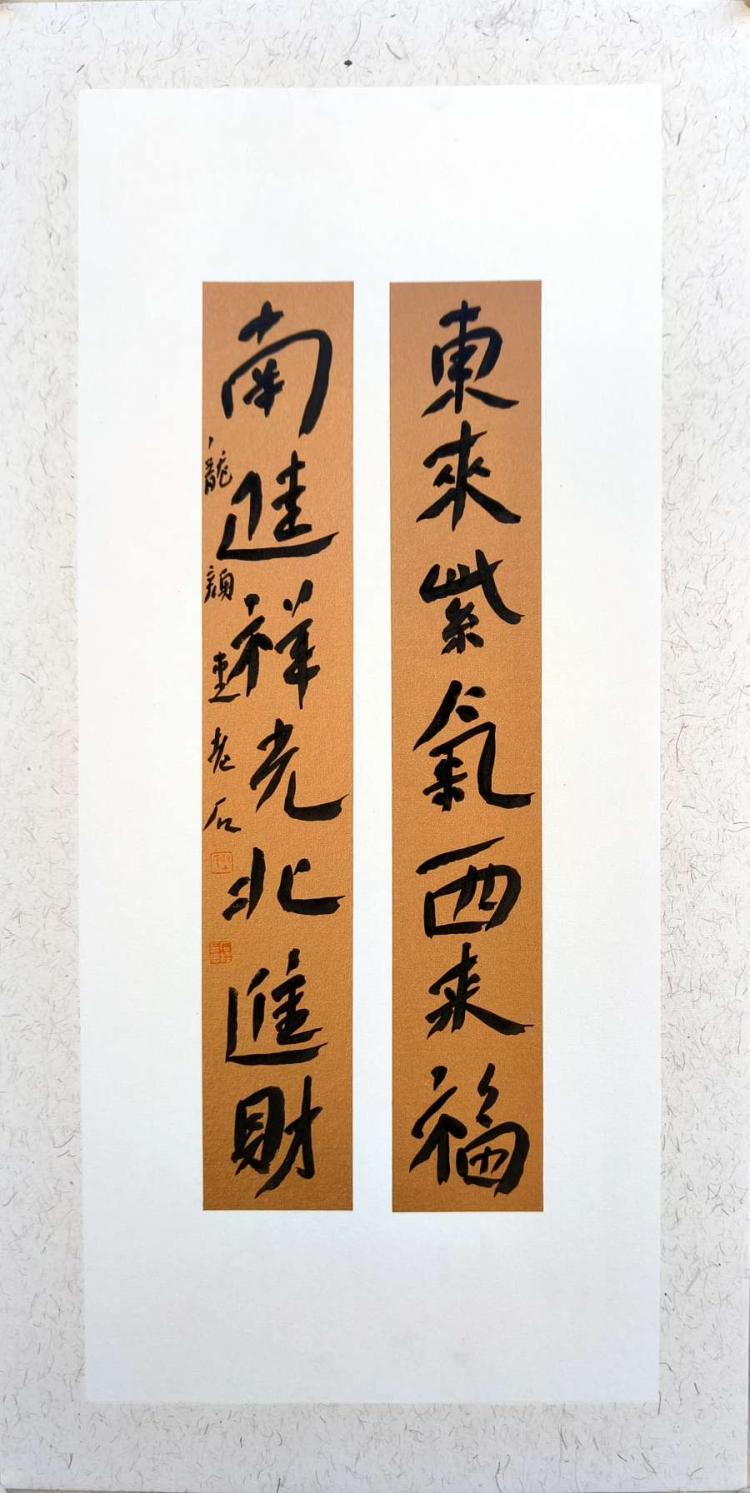 東來紫氣西來福
南進祥光北進財
龍 老石